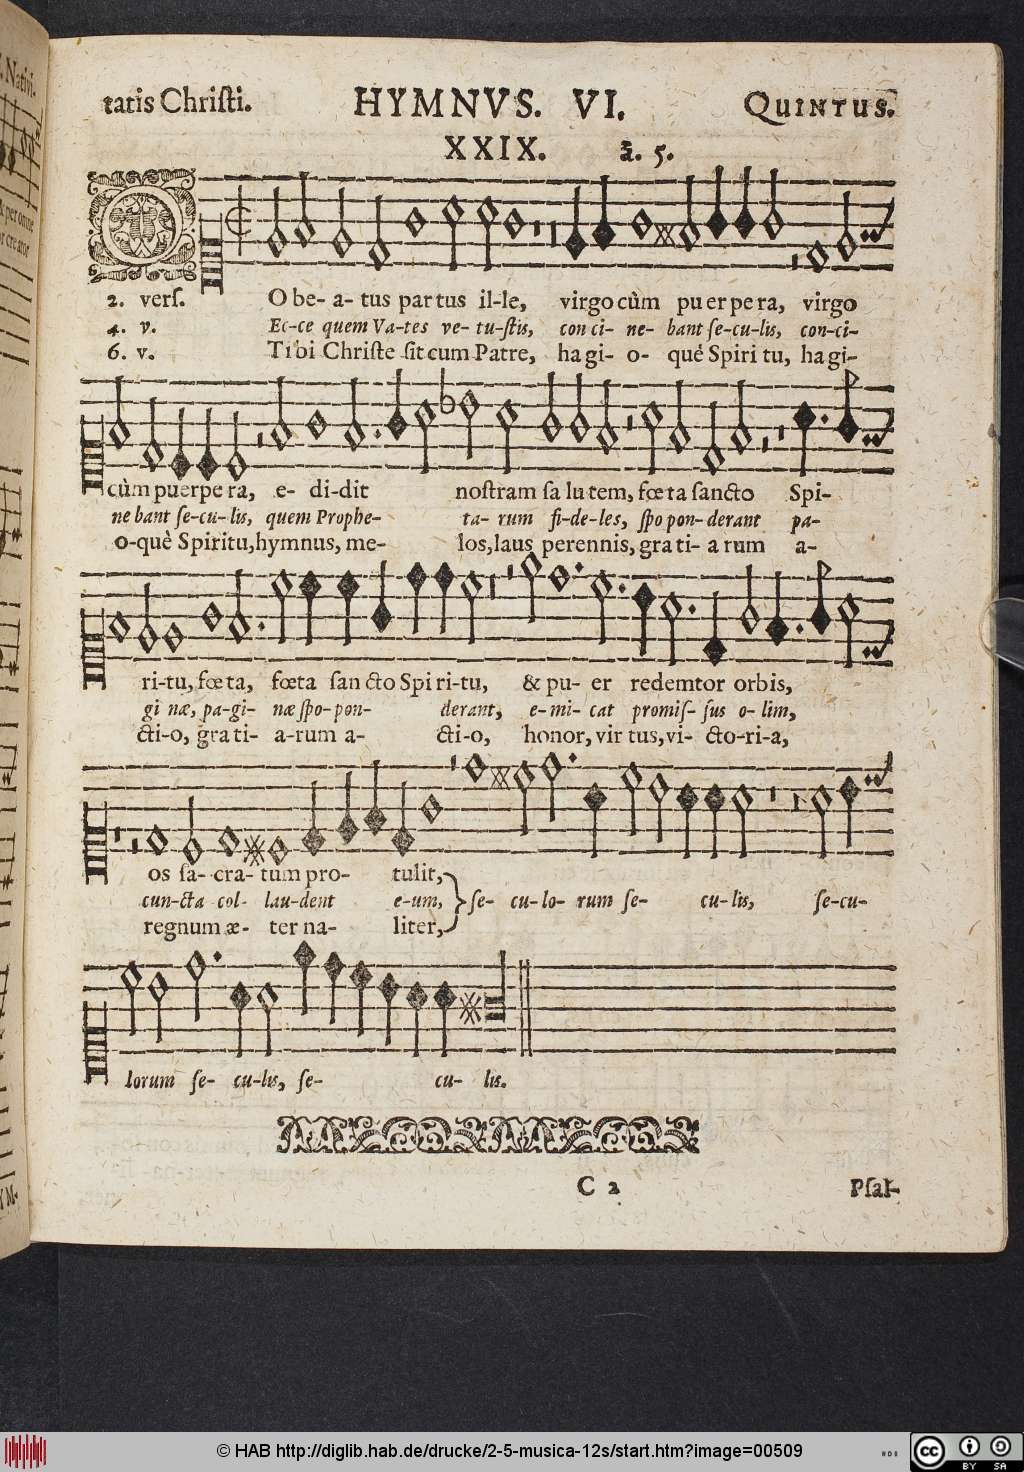 tatis Chriſti. HYMNVS. VI. QUINTUS.
XXIX. ā. 5.
2. verſ. O be- a- tus partus il-le, virgo cùm puerpera, virgo
4. v. Ec-ce quem Va-tes ve- tu-ſtis, con ci- ne- bant ſe-cu-lis, con-ci-
6. v. Tibi Chriſte ſit cum Patre, hagi- o- què Spiri tu, hagi-
cùm puerpe ra, e- di-dit noſtram ſa lu tem, fœta ſancto Spi-
ne bant ſe-cu-lis, quem Prophe- ta- rum fi-de-les, ſpo pon- derant pa-
o-què Spiritu, hymnus, me- los, laus perennis, gra ti- a rum a-
ri-tu, fœta, fœta ſan cto Spi ri-tu, & pu- er redemtor orbis,
gi næ, pa-gi- næ ſpo-pon- derant, e-mi-cat promiſ- ſus o-lim,
cti-o, gra ti- a-rum a- cti-o, honor, vir tus, vi- cto-ri-a,
os ſa- cra- tum pro- tulit,
cun-cta col- lau-dent e-um, ſe- cu-lo- rum ſe- cu-lis, ſe-cu-
regnum æ- ter na- liter,
lorum ſe- cu-lis, ſe- cu- lis.
C 2 Pſal-
© HAB http://diglib.hab.de/drucke/2-5-musica-12s/start.htm?image=00509
cc BY SA